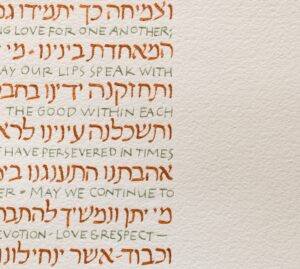 וצמיחה כך יתמידו גם
NG LOVE FOR ONE ANOTHER;
המאחדת בינינו - מי י
AY OUR LIPS SPEAK WITH
ותחזקנה ידינו בחב
THE GOOD WITHIN EACH
ותשכלנה עינינו לרא
HAVE PERSEVERED IN TIMES
אהבתנו התענגנו בימ
ER • MAY WE CONTINUE TO
מי יתן ונמשיך להתבר
EVOTION - LOVE & RESPECT —
וכבוד - אשר ינחילונו